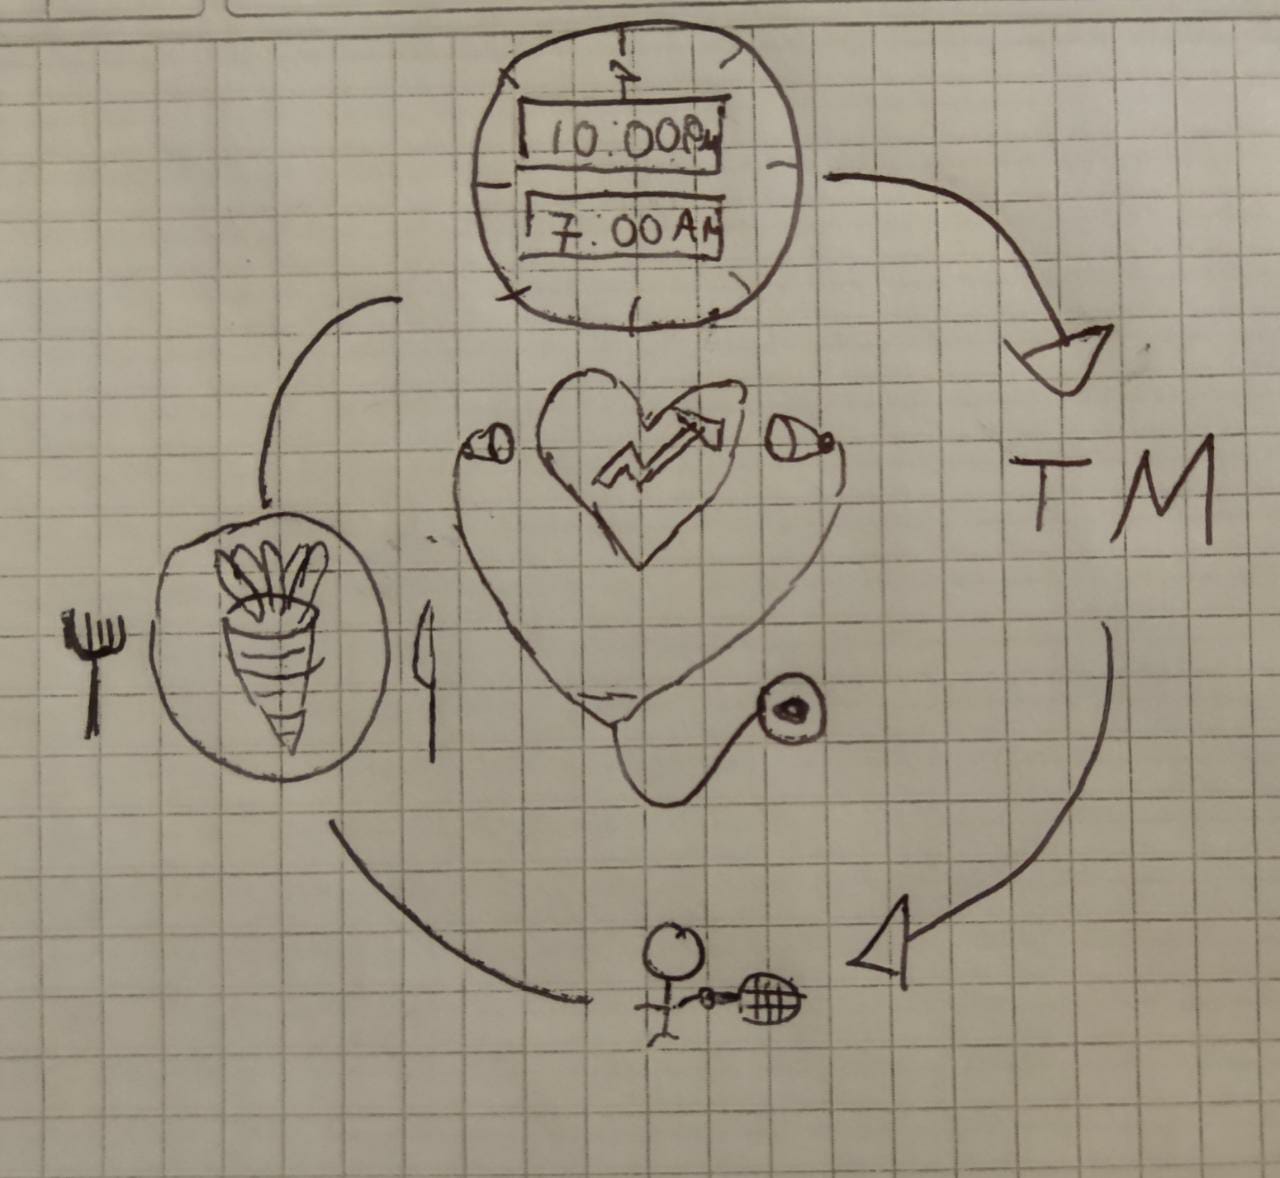 10:00PM
7:00AM
TM